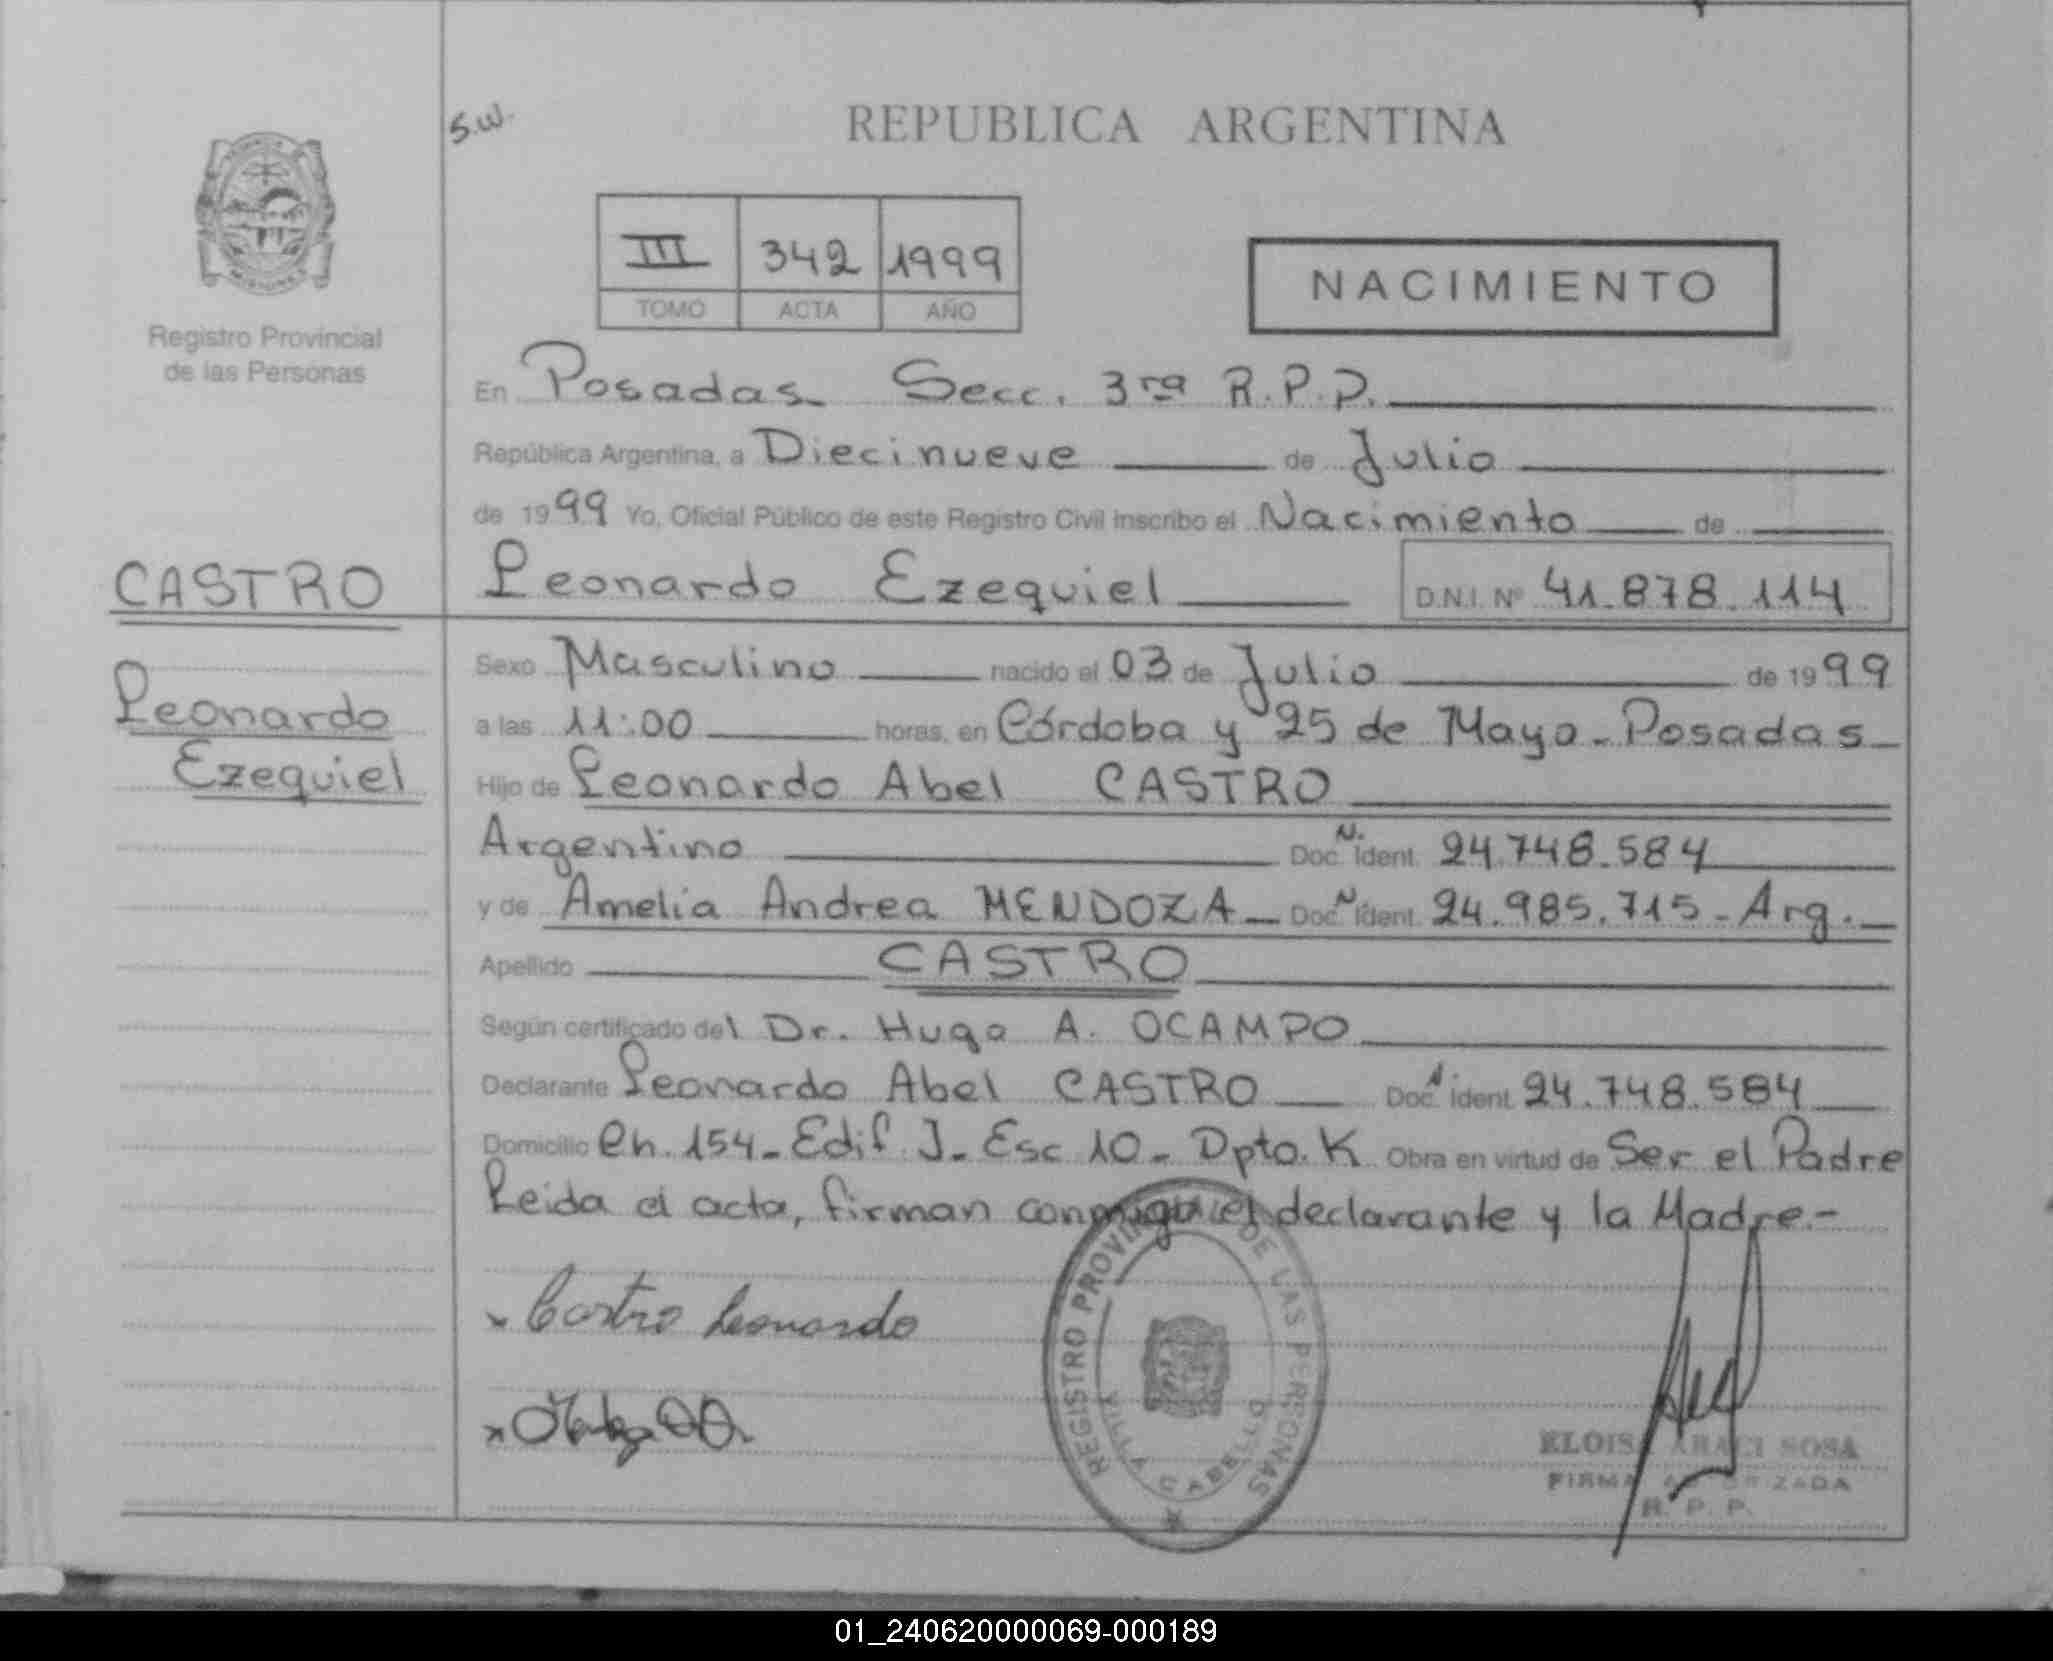 S.W.
REPUBLICA ARGENTINA
III 342 1999
TOMO ACTA AÑO
NACIMIENTO
Registro Provincial
de las Personas
En Posadas_ Secc. 3ra R.P.P.
República Argentina, a Diecinueve de Julio
de 1999 Yo, Oficial Público de este Registro Civil inscribo el Nacimiento de
CASTRO
Leonardo Ezequiel D.N.I. Nº 41.878.114
Leonardo
Ezequiel
Sexo Masculino nacido el 03 de Julio de 1999
a las 11:00 horas, en Córdoba y 25 de Mayo_Posadas_
Hijo de Leonardo Abel CASTRO
Argentino Doc. N. Ident. 24.748.584
y de Amelia Andrea MENDOZA_ Doc. N Ident. 24.985.715-Arg._
Apellido CASTRO
Según certificado del Dr. Hugo A. OCAMPO
Declarante Leonardo Abel CASTRO Doc. N. Ident. 24.748.584
Domicilio Ch. 154_Edif J_ Esc 10_ Dpto. K Obra en virtud de Ser el Padre
Leida el acta, firman conmigo el declarante y la Madre.-
x Castro Leonardo
x
REGISTRO PROVINCIAL DE LAS PERSONAS
VILLA CABELLO
ELOISA ARACI SOSA
FIRMA AUTORIZADA
R. P. P.
01_240620000069-000189